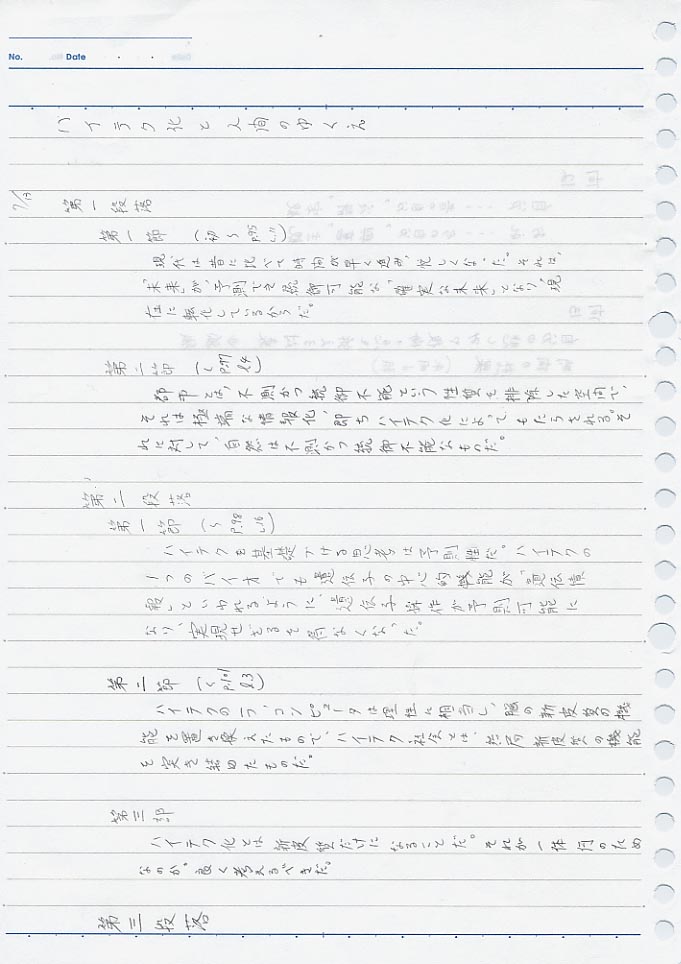 No.
Date
ハイテク化と人間のゆくえ
7/13
第一段落
第一節 (初〜P.95 l.11)
現代は昔に比べて時間が早く進み、忙しくなった。それは、
"未来"が、予測でき統御可能な"確実な未来"となり、現
在に転化しているからだ。
第二節 (〜P.97 l.4)
都市とは、不測かつ統御不能という性質を排除した空間で、
それは極端な情報化、即ちハイテク化によってもたらされる。そ
れに対して、自然は不測かつ統御不能なものだ。
第二段落
第一節 (〜P.98 l.16)
ハイテクを基礎づける思考は予測性だ。ハイテクの
1つのバイオでも遺伝子の中心的機能が、遺伝情
報といわれるように、遺伝子操作が予測可能に
なり、実現せざるを得なくなった。
第二節 (〜P.101 l.3)
ハイテクの一つ、コンピュータは理性に相当し、脳の新皮質の機
能を置き換えたもので、ハイテク社会とは、結局新皮質の機能
を突き詰めたものだ。
第三節
ハイテク化とは新皮質だけになることだ。それが一体何のため
なのか。良く考えるべきだ。
第三段落